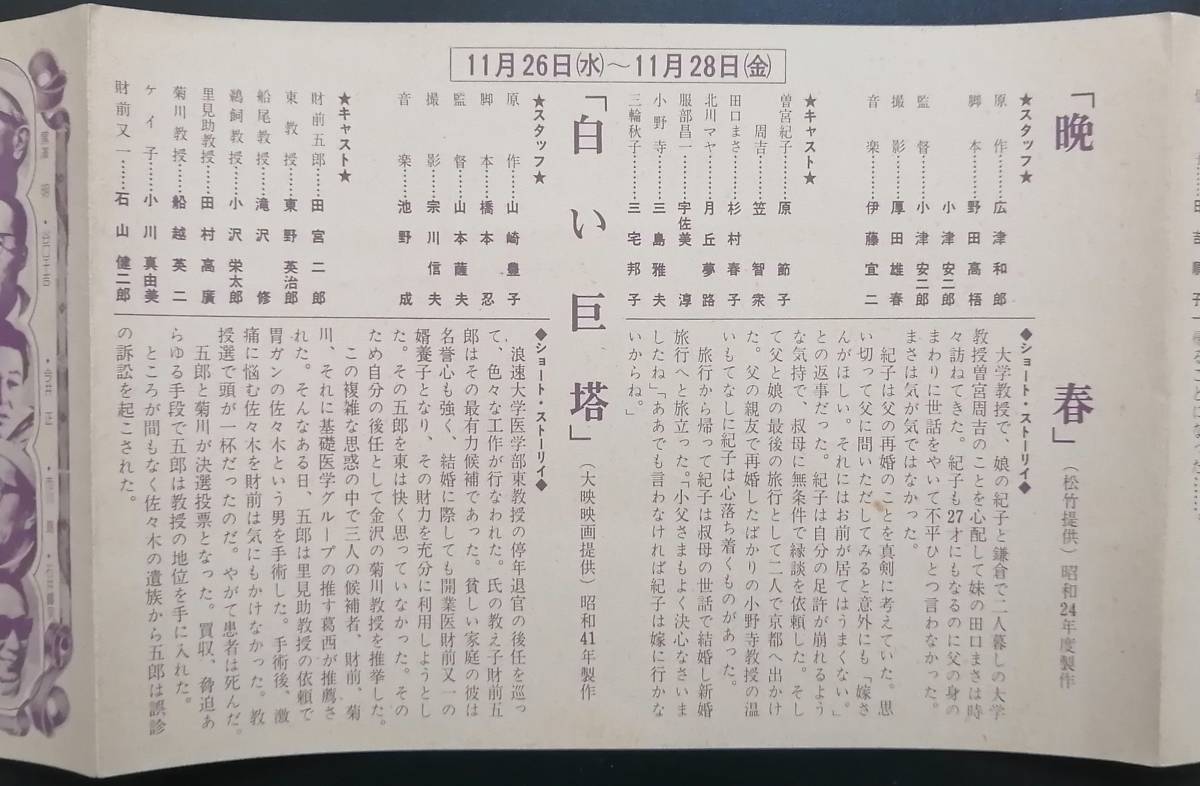 11月26日㈬～11月28日㈮
「晩春」
(松竹提供)昭和24年度製作
★スタッフ★
原作……広津和郎
脚本……野田高梧
小津安二郎
監督……小津安二郎
撮影……厚田雄春
音楽……伊藤宜二
★キャスト★
曽宮紀子……原節子
周吉……笠智衆
田口まさ……杉村春子
北川マヤ……月丘夢路
服部昌一……宇佐美淳
小野寺……三島雅夫
三輪秋子……三宅邦子
◆ショート・ストーリイ◆
大学教授で、娘の紀子と鎌倉で二人暮しの大学
教授曽宮周吉のことを心配して妹の田口まさは時
々訪ねてきた。紀子も27才にもなるのに父の身の
まわりに世話をやいて不平ひとつ言わなかった。
まさは気が気ではなかった。
紀子は父の再婚のことを真剣に考えていた。思
い切って父に問いただしてみると意外にも「嫁さ
んがほしい。それにはお前が居てはうまくない。」
との返事だった。紀子は自分の足許が崩れるよう
な気持で、叔母に無条件で縁談を依頼した。そし
て父と娘の最後の旅行として二人で京都へ出かけ
た。父の親友で再婚したばかりの小野寺教授の温
いもてなしに紀子は心落ち着くものがあった。
旅行から帰って紀子は叔母の世話で結婚し新婚
旅行へと旅立った。「小父さまもよく決心なさいま
したね」「ああでも言わなければ紀子は嫁に行かな
いからね。」
「白い巨塔」
(大映映画提供)昭和41年製作
★スタッフ★
原作……山崎豊子
脚本……橋本忍
監督……山本薩夫
撮影……宗川信夫
音楽……池野成
★キャスト★
財前五郎……田宮二郎
東教授……東野英治郎
船尾教授……滝沢修
鵜飼教授……小沢栄太郎
里見助教授……田村高廣
菊川教授……船越英二
ケイ子……小川真由美
財前又一……石山健二郎
◆ショート・ストーリイ◆
浪速大学医学部東教授の停年退官の後任を巡っ
て、色々な工作が行なわれた。氏の教え子財前五
郎はその最有力候補であった。貧しい家庭の彼は
名誉心も強く、結婚に際しても開業医財前又一の
婿養子となり、その財力を充分に利用しようとし
た。その五郎を東は快く思っていなかった。その
ため自分の後任として金沢の菊川教授を推挙した。
この複雑な思惑の中で三人の候補者、財前、菊
川、それに基礎医学グループの推す葛西が推薦さ
れた。そんなある日、五郎は里見助教授の依頼で
胃ガンの佐々木という男を手術した。手術後、激
痛に悩む佐々木を財前は気にもかけなかった。教
授選で頭が一杯だったのだ。やがて患者は死んだ。
五郎と菊川が決選投票となった。買収、脅迫あ
らゆる手段で五郎は教授の地位を手に入れた。
ところが間もなく佐々木の遺族から五郎は誤診
の訴訟を起こされた。